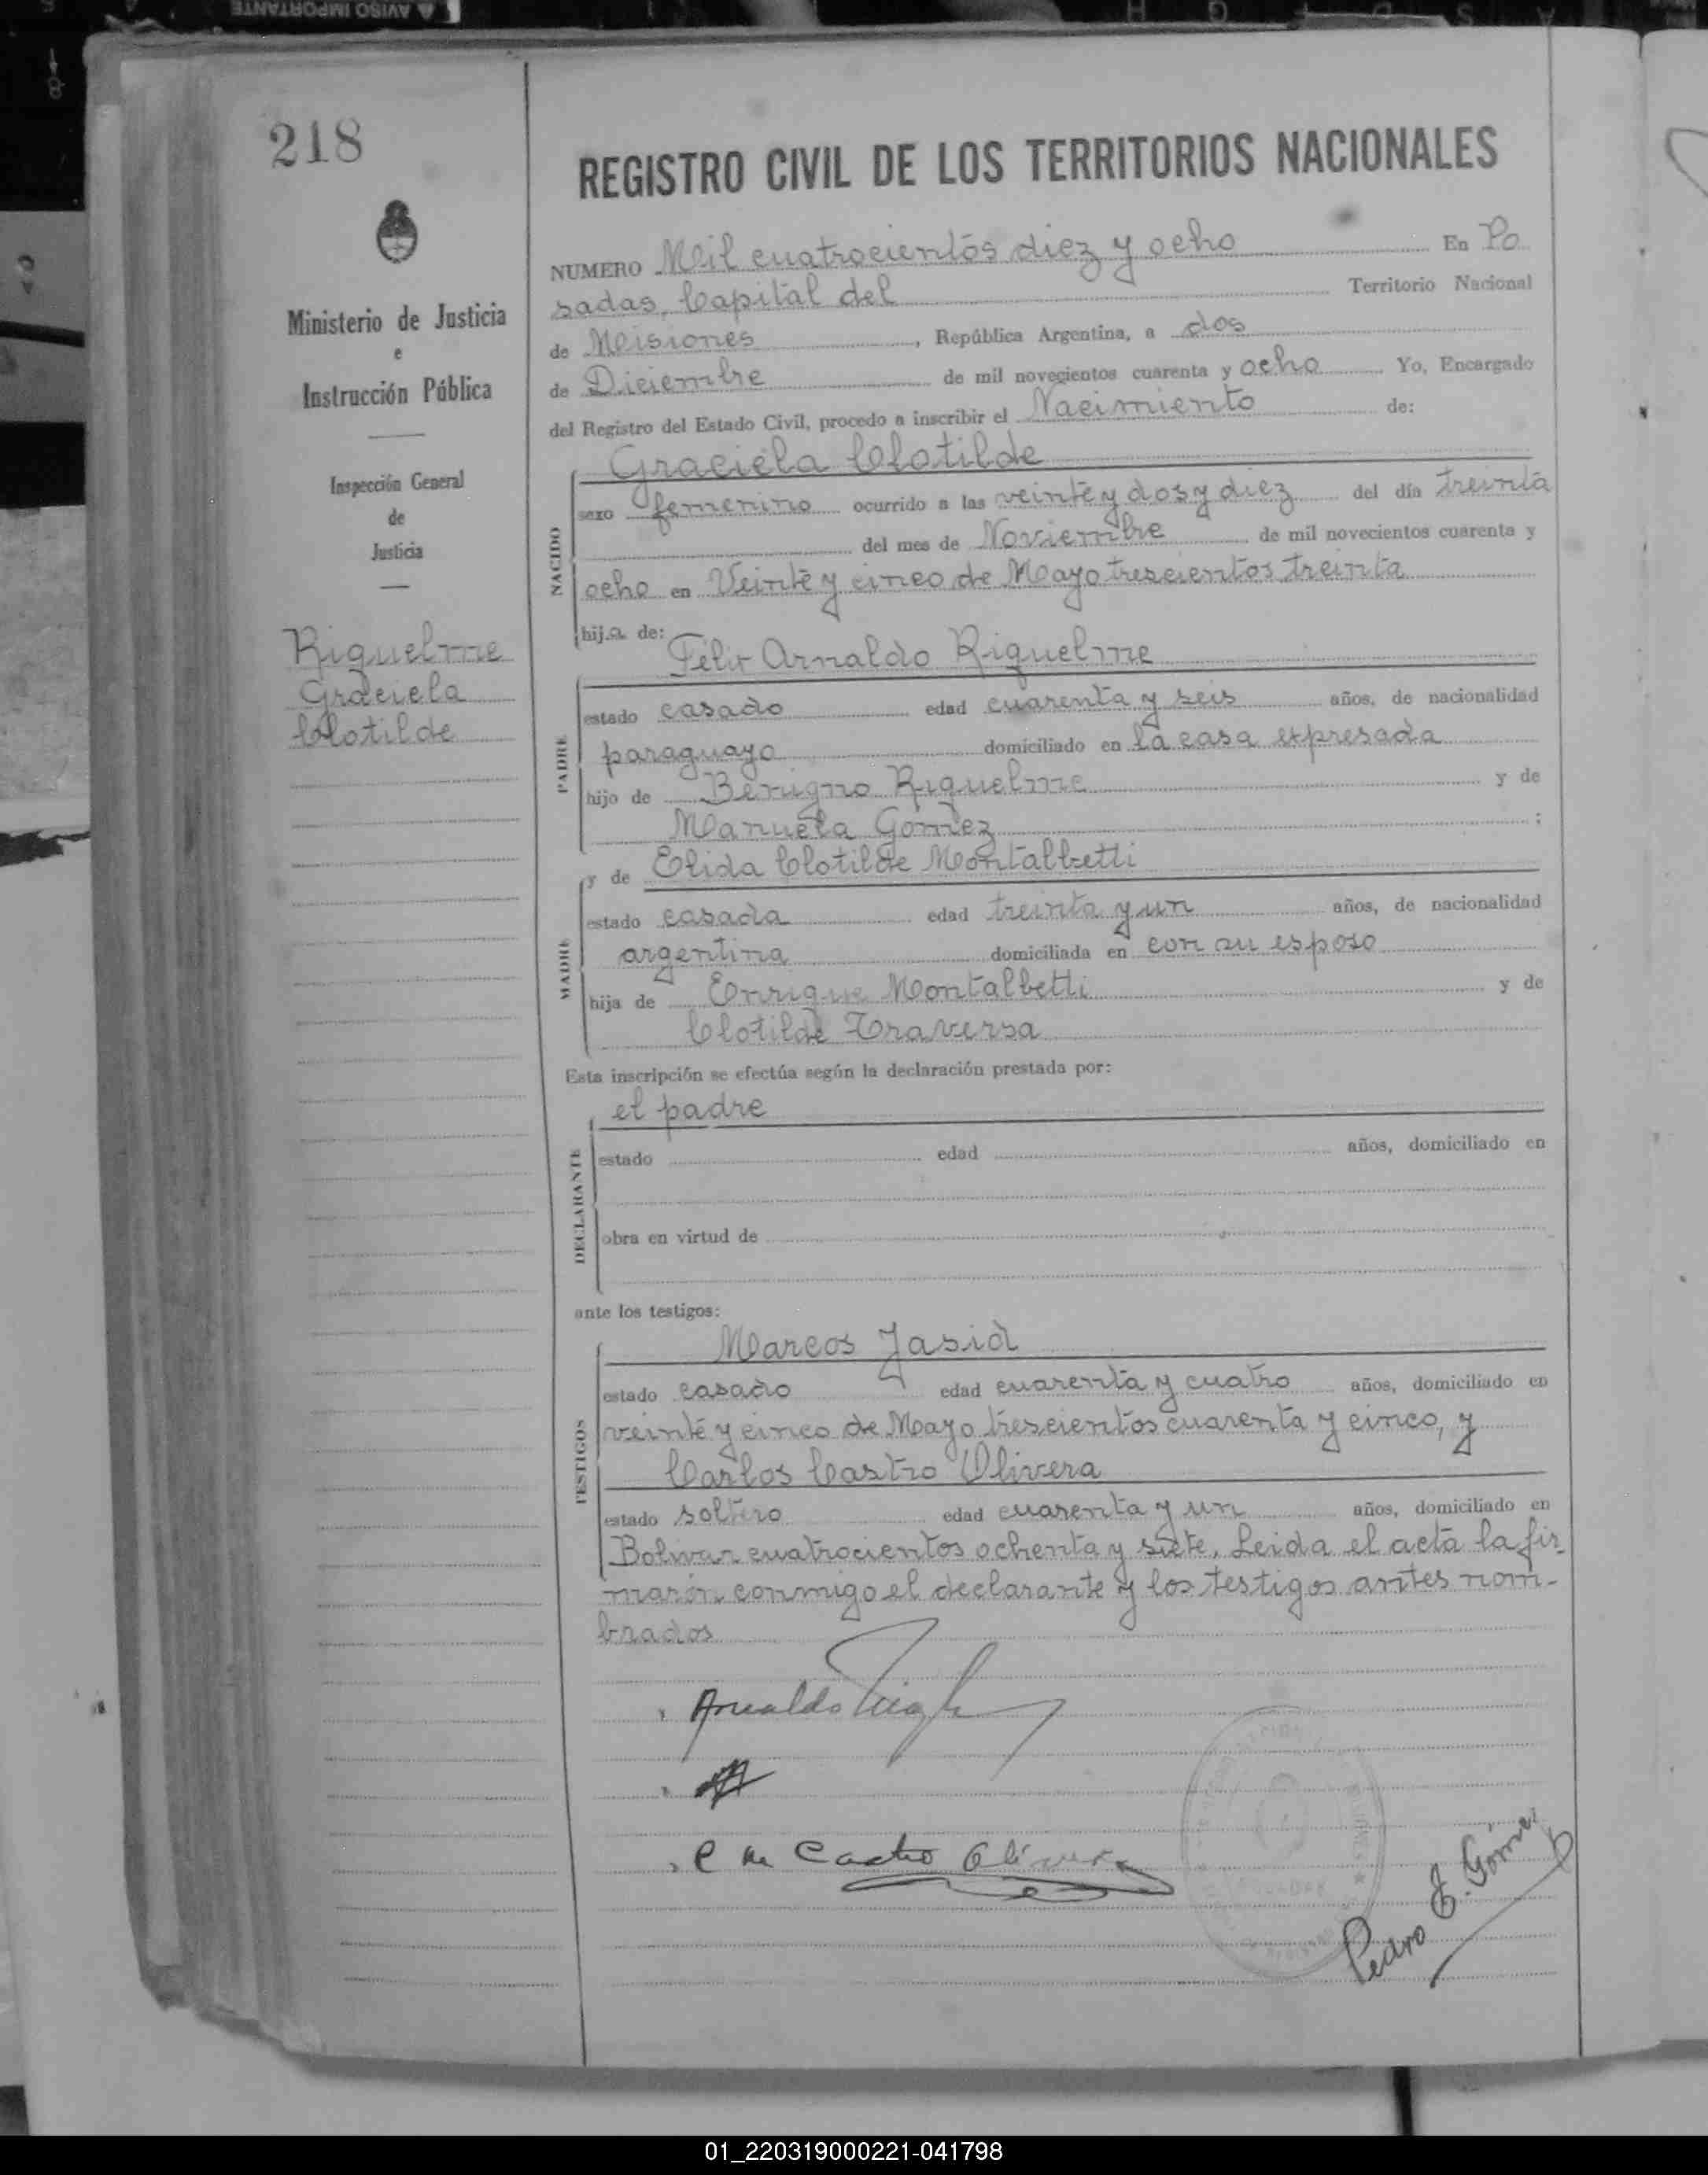 AVISO IMPORTANTE
218
REGISTRO CIVIL DE LOS TERRITORIOS NACIONALES
Ministerio de Justicia
e
Instrucción Pública
Inspección General
de
Justicia
Riquelme
Graciela
Clotilde
NUMERO Mil cuatrocientos diez y ocho En Po
sadas, Capital del Territorio Nacional
de Misiones, República Argentina, a dos
de Diciembre de mil novecientos cuarenta y ocho Yo, Encargado
del Registro del Estado Civil, procedo a inscribir el Nacimiento de:
NACIDO
Graciela Clotilde
sexo femenino ocurrido a las veinte y dos y diez del día treinta
del mes de Noviembre de mil novecientos cuarenta y
ocho en Veinte y cinco de Mayo trescientos treinta
hija de:
Félix Arnaldo Riquelme
PADRE
estado casado edad cuarenta y seis años, de nacionalidad
paraguayo domiciliado en la casa expresada
hijo de Benigno Riquelme y de
Manuela Gómez;
y de Elida Clotilde Montalbetti
MADRE
estado casada edad treinta y un años, de nacionalidad
argentina domiciliada en con su esposo
hija de Enrique Montalbetti y de
Clotilde Traversa
Esta inscripción se efectúa según la declaración prestada por:
el padre
DECLARANTE
estado edad años, domiciliado en
obra en virtud de
ante los testigos:
Marcos Jasid
TESTIGOS
estado casado edad cuarenta y cuatro años, domiciliado en
veinte y cinco de Mayo trescientos cuarenta y cinco, y
Carlos Castro Olivera
estado soltero edad cuarenta y un años, domiciliado en
Bolivar cuatrocientos ochenta y siete. Leida el acta la fir
maron conmigo el declarante y los testigos antes nom-
brados
Arnaldo
Castro Olivera
Pedro J. Gómez
01_220319000221-041798